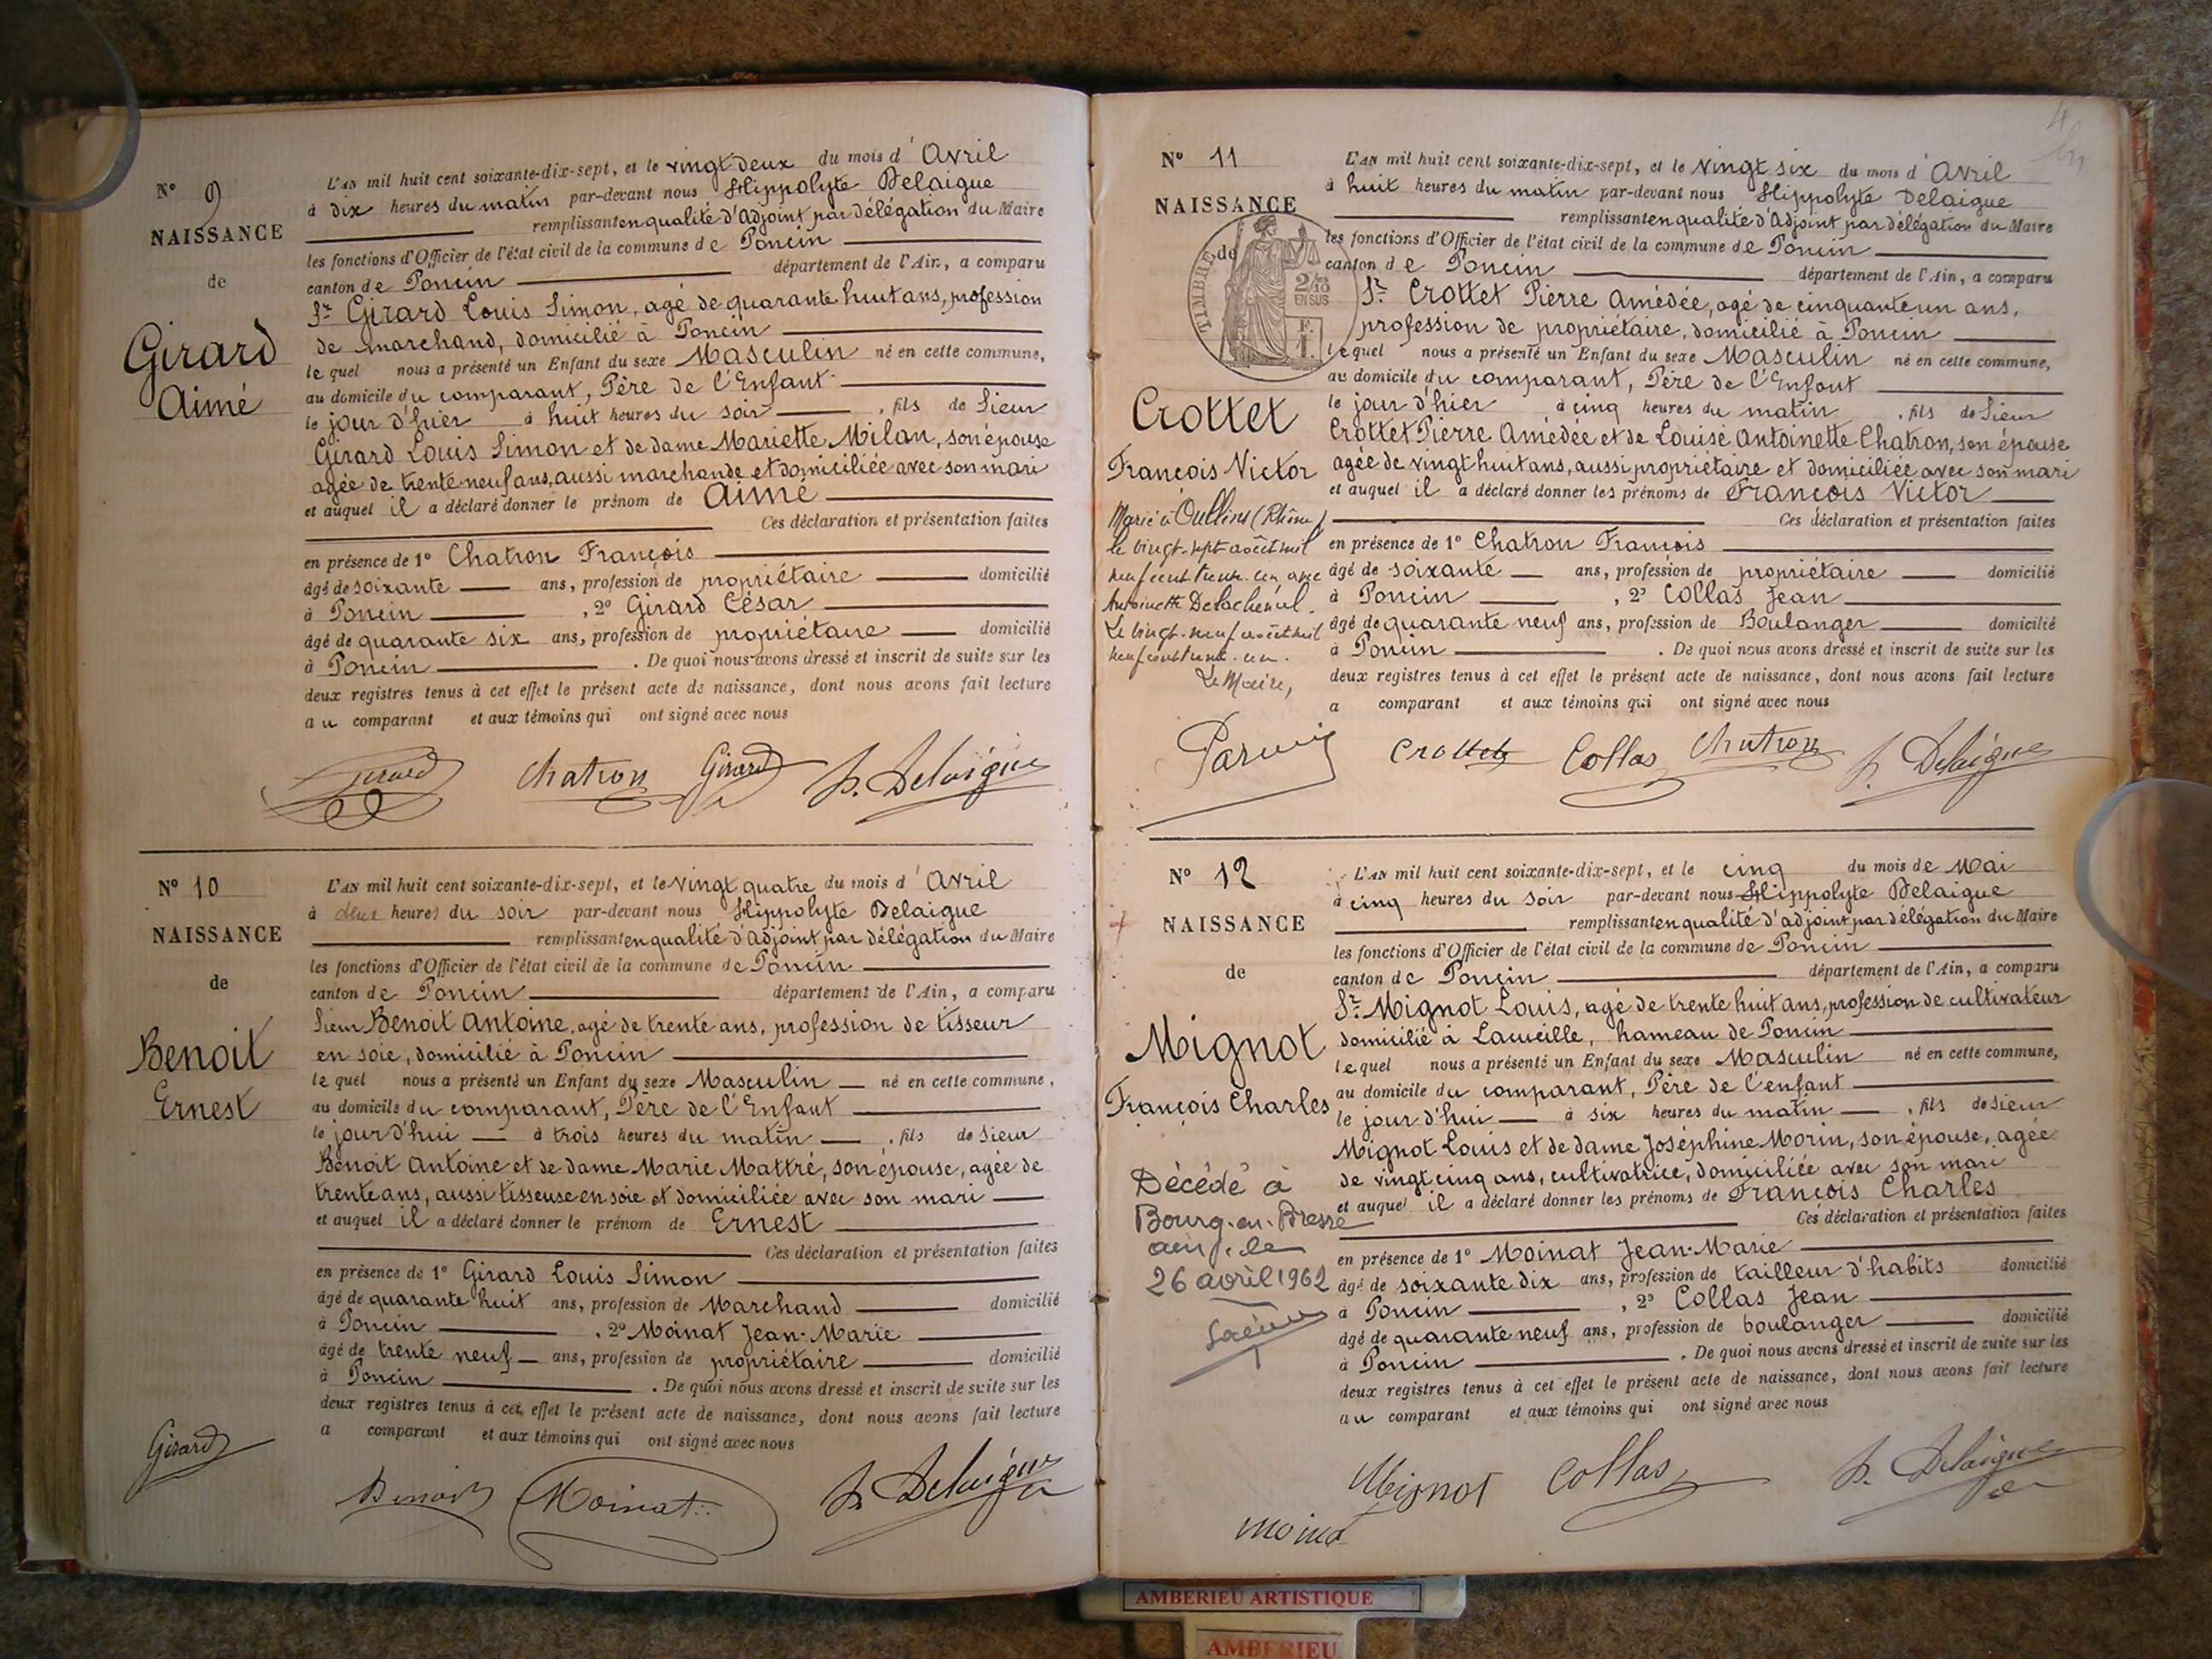 N° 9
NAISSANCE
de
Girard
Aimé
L'AN mil huit cent soixante-dix-sept, et le vingt deux du mois d'Avril
à dix heures du matin par-devant nous Hippolyte Delaigue
remplissant en qualité d'Adjoint par délégation du Maire
les fonctions d'Officier de l'état civil de la commune de Poncin
canton de Poncin département de l'Ain, a comparu
Sr Girard Louis Simon, agé de quarante huit ans, profession
de marchand, domicilié à Poncin
lequel nous a présenté un Enfant du sexe Masculin né en cette commune,
au domicile du comparant, Père de l'Enfant
le jour d'hier à huit heures du soir, fils de Sieur
Girard Louis Simon et de dame Mariette Milan, son épouse
agée de trente neuf ans, aussi marchande et domiciliée avec son mari
et auquel il a déclaré donner le prénom de Aimé
Ces déclaration et présentation faites
en présence de 1° Chatron François
âgé de soixante ans, profession de propriétaire domicilié
à Poncin, 2° Girard César
âgé de quarante six ans, profession de propriétaire domicilié
à Poncin. De quoi nous avons dressé et inscrit de suite sur les
deux registres tenus à cet effet le présent acte de naissance, dont nous avons fait lecture
au comparant et aux témoins qui ont signé avec nous
Girard Chatron Girard h. Delaigue
N° 10
NAISSANCE
de
Benoit
Ernest
L'AN mil huit cent soixante-dix-sept, et le vingt quatre du mois d'Avril
à deux heures du soir par-devant nous Hippolyte Delaigue
remplissant en qualité d'Adjoint par délégation du Maire
les fonctions d'Officier de l'état civil de la commune de Poncin
canton de Poncin département de l'Ain, a comparu
Sieur Benoit Antoine, agé de trente ans, profession de tisseur
en soie, domicilié à Poncin
lequel nous a présenté un Enfant du sexe Masculin né en cette commune,
au domicile du comparant, Père de l'Enfant
le jour d'hui à trois heures du matin, fils de Sieur
Benoit Antoine et de dame Marie Mattré, son épouse, agée de
trente ans, aussi tisseuse en soie et domiciliée avec son mari
et auquel il a déclaré donner le prénom de Ernest
Ces déclaration et présentation faites
en présence de 1° Girard Louis Simon
âgé de quarante huit ans, profession de Marchand domicilié
à Poncin, 2° Moinat Jean-Marie
âgé de trente neuf ans, profession de propriétaire domicilié
à Poncin. De quoi nous avons dressé et inscrit de suite sur les
deux registres tenus à cet effet le présent acte de naissance, dont nous avons fait lecture
a comparant et aux témoins qui ont signé avec nous
Girard
Benoit Moinat h. Delaigue
N° 11
NAISSANCE
de
TIMBRE
2/10
EN SUS
F.
1.
Crottet
François Victor
Marié à Oullins (Rhône)
le vingt-sept août mil
neuf cent trente-un avec
Antoinette Delachenal.
Le vingt-neuf août mil
neuf cent trente-un.
Le Maire,
L'AN mil huit cent soixante-dix-sept, et le vingt six du mois d'Avril
à huit heures du matin par-devant nous Hippolyte Delaigue
remplissant en qualité d'Adjoint par délégation du Maire
les fonctions d'Officier de l'état civil de la commune de Poncin
canton de Poncin département de l'Ain, a comparu
Sr Crottet Pierre Amédée, agé de cinquante un ans,
profession de propriétaire, domicilié à Poncin
lequel nous a présenté un Enfant du sexe Masculin né en cette commune,
au domicile du comparant, Père de l'Enfant
le jour d'hier à cinq heures du matin, fils de Sieur
Crottet Pierre Amédée et de Louise Antoinette Chatron, son épouse
agée de vingt huit ans, aussi propriétaire et domiciliée avec son mari
et auquel il a déclaré donner les prénoms de François Victor
Ces déclaration et présentation faites
en présence de 1° Chatron François
âgé de soixante ans, profession de propriétaire domicilié
à Poncin, 2° Collas Jean
âgé de quarante neuf ans, profession de Boulanger domicilié
à Poncin. De quoi nous avons dressé et inscrit de suite sur les
deux registres tenus à cet effet le présent acte de naissance, dont nous avons fait lecture
a comparant et aux témoins qui ont signé avec nous
Crottet Collas Chatron h. Delaigue
N° 12
NAISSANCE
de
Mignot
François Charles
Décédé à
Bourg-en-Bresse
Ain, le
26 avril 1962
L'AN mil huit cent soixante-dix-sept, et le cinq du mois de Mai
à cinq heures du soir par-devant nous Hippolyte Delaigue
remplissant en qualité d'adjoint par délégation du Maire
les fonctions d'Officier de l'état civil de la commune de Poncin
canton de Poncin département de l'Ain, a comparu
Sr Mignot Louis, agé de trente huit ans, profession de cultivateur
domicilié à Lacueille, hameau de Poncin
lequel nous a présenté un Enfant du sexe Masculin né en cette commune,
au domicile du comparant, Père de l'enfant
le jour d'hui à six heures du matin, fils de Sieur
Mignot Louis et de dame Joséphine Morin, son épouse, agée
de vingt cinq ans, cultivatrice, domiciliée avec son mari
et auquel il a déclaré donner les prénoms de François Charles
Ces déclaration et présentation faites
en présence de 1° Moinat Jean-Marie
âgé de soixante dix ans, profession de tailleur d'habits domicilié
à Poncin, 2° Collas Jean
âgé de quarante neuf ans, profession de boulanger domicilié
à Poncin. De quoi nous avons dressé et inscrit de suite sur les
deux registres tenus à cet effet le présent acte de naissance, dont nous avons fait lecture
au comparant et aux témoins qui ont signé avec nous
Mignot Collas h. Delaigue
moinat
AMBERIEU ARTISTIQUE
AMBERIEU